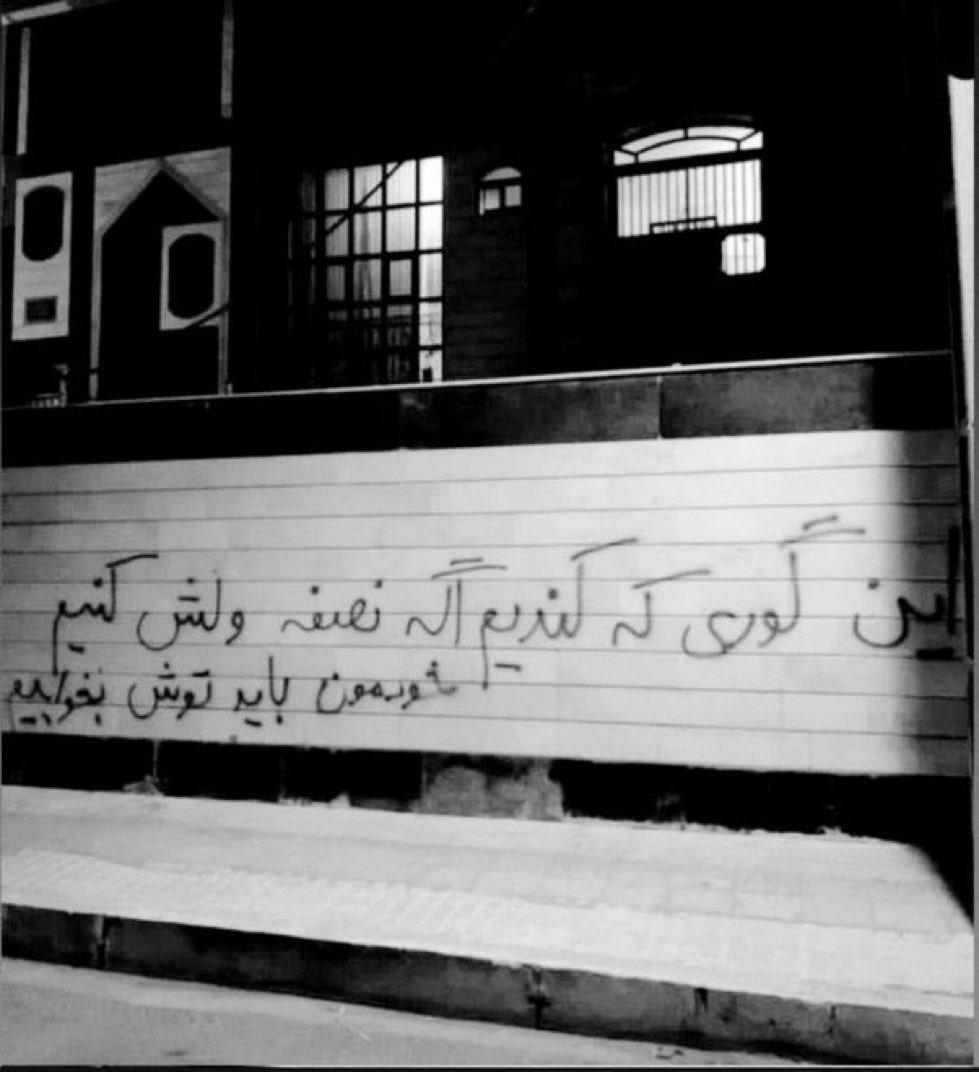 این گوری که کندیم اگه نصفه ولش کنیم
خودمون باید توش بخوابیم